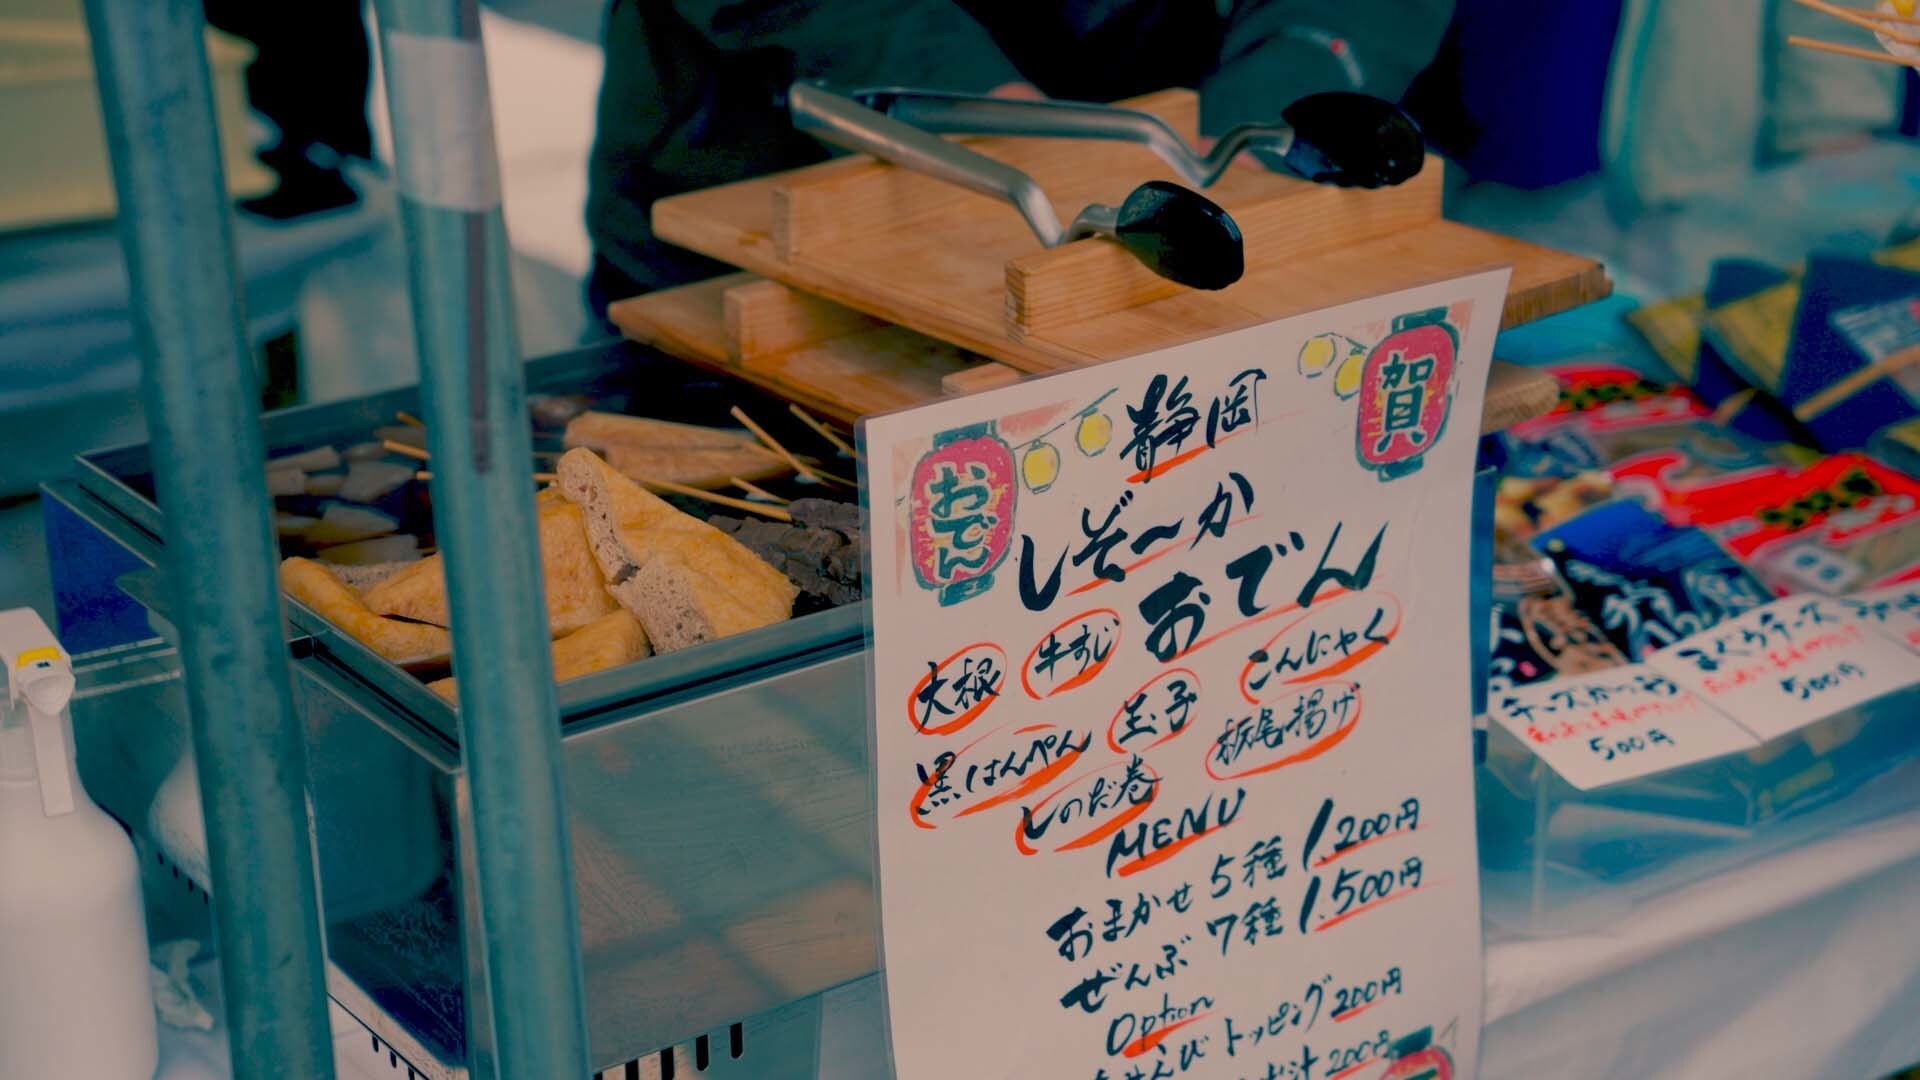 静岡
賀
おでん
しぞ〜か
おでん
大根 牛すじ こんにゃく
黒はんぺん 玉子 栃尾揚げ
しのだ巻
MENU
おまかせ 5種 1.200円
ぜんぶ 7種 1.500円
Option
トッピング200円
汁200円
チーズかつお
500円
まぐろチーズ
500円